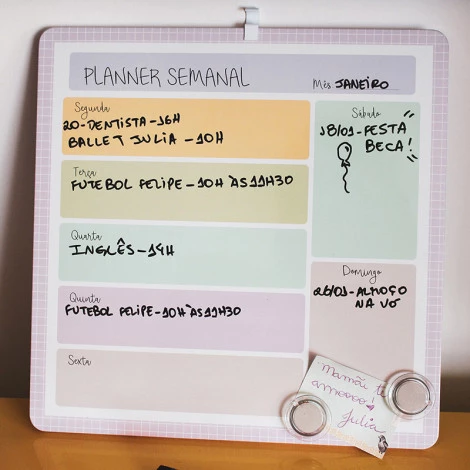 PLANNER SEMANAL
Mês: JANEIRO
Segunda
20-DENTISTA-16H
BALLET JULIA - 10H
Terça
FUTEBOL FELIPE - 10H ÀS 11H30
Quarta
INGLÊS - 14H
Quinta
FUTEBOL FELIPE-10H ÀS 11H30
Sexta
Sábado
18/01-FESTA
BECA!
Domingo
26/01-ALMOÇO
NA VÓ
Mamãe te
amooo!
Julia